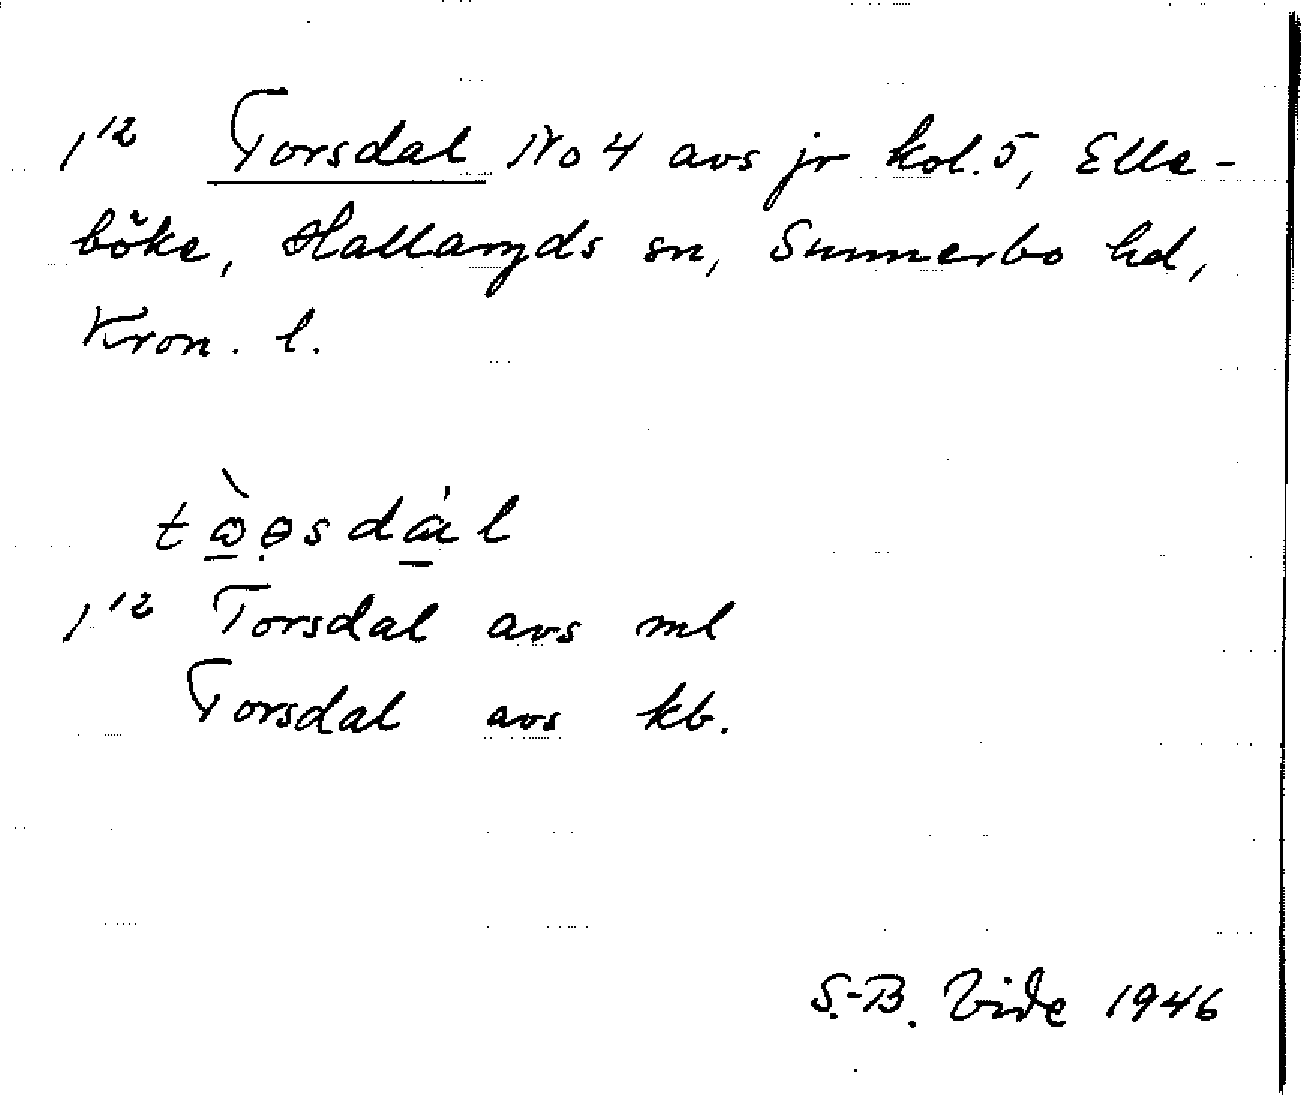 1¹² Torsdal No 4 avs jr kol. 5, Elle-
böke, Hallaryds sn, Sunnerbo hd,
Kron. l.
1¹² Torsdal avs ml
Torsdal avs kb.
S.-B. Vide 1946